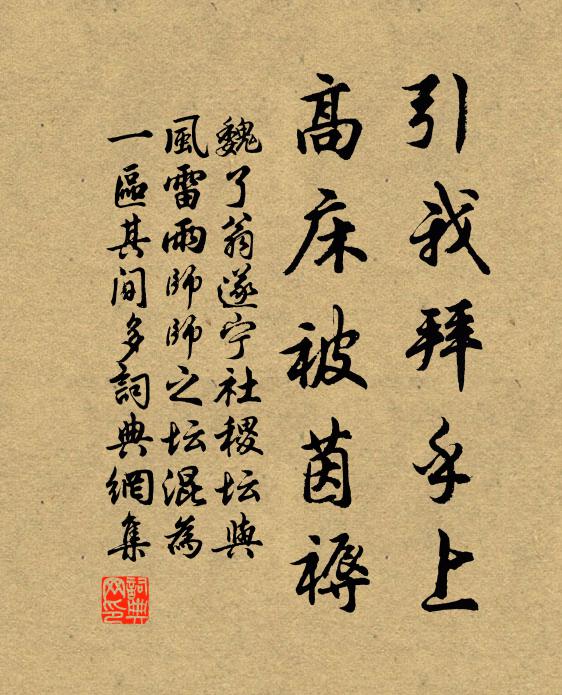 引我拜手上
高床被茵褥
魏了翁遂宁社稷坛與
風雷雨師師之坛混為
一區其间多詞典網集
詞典
网印